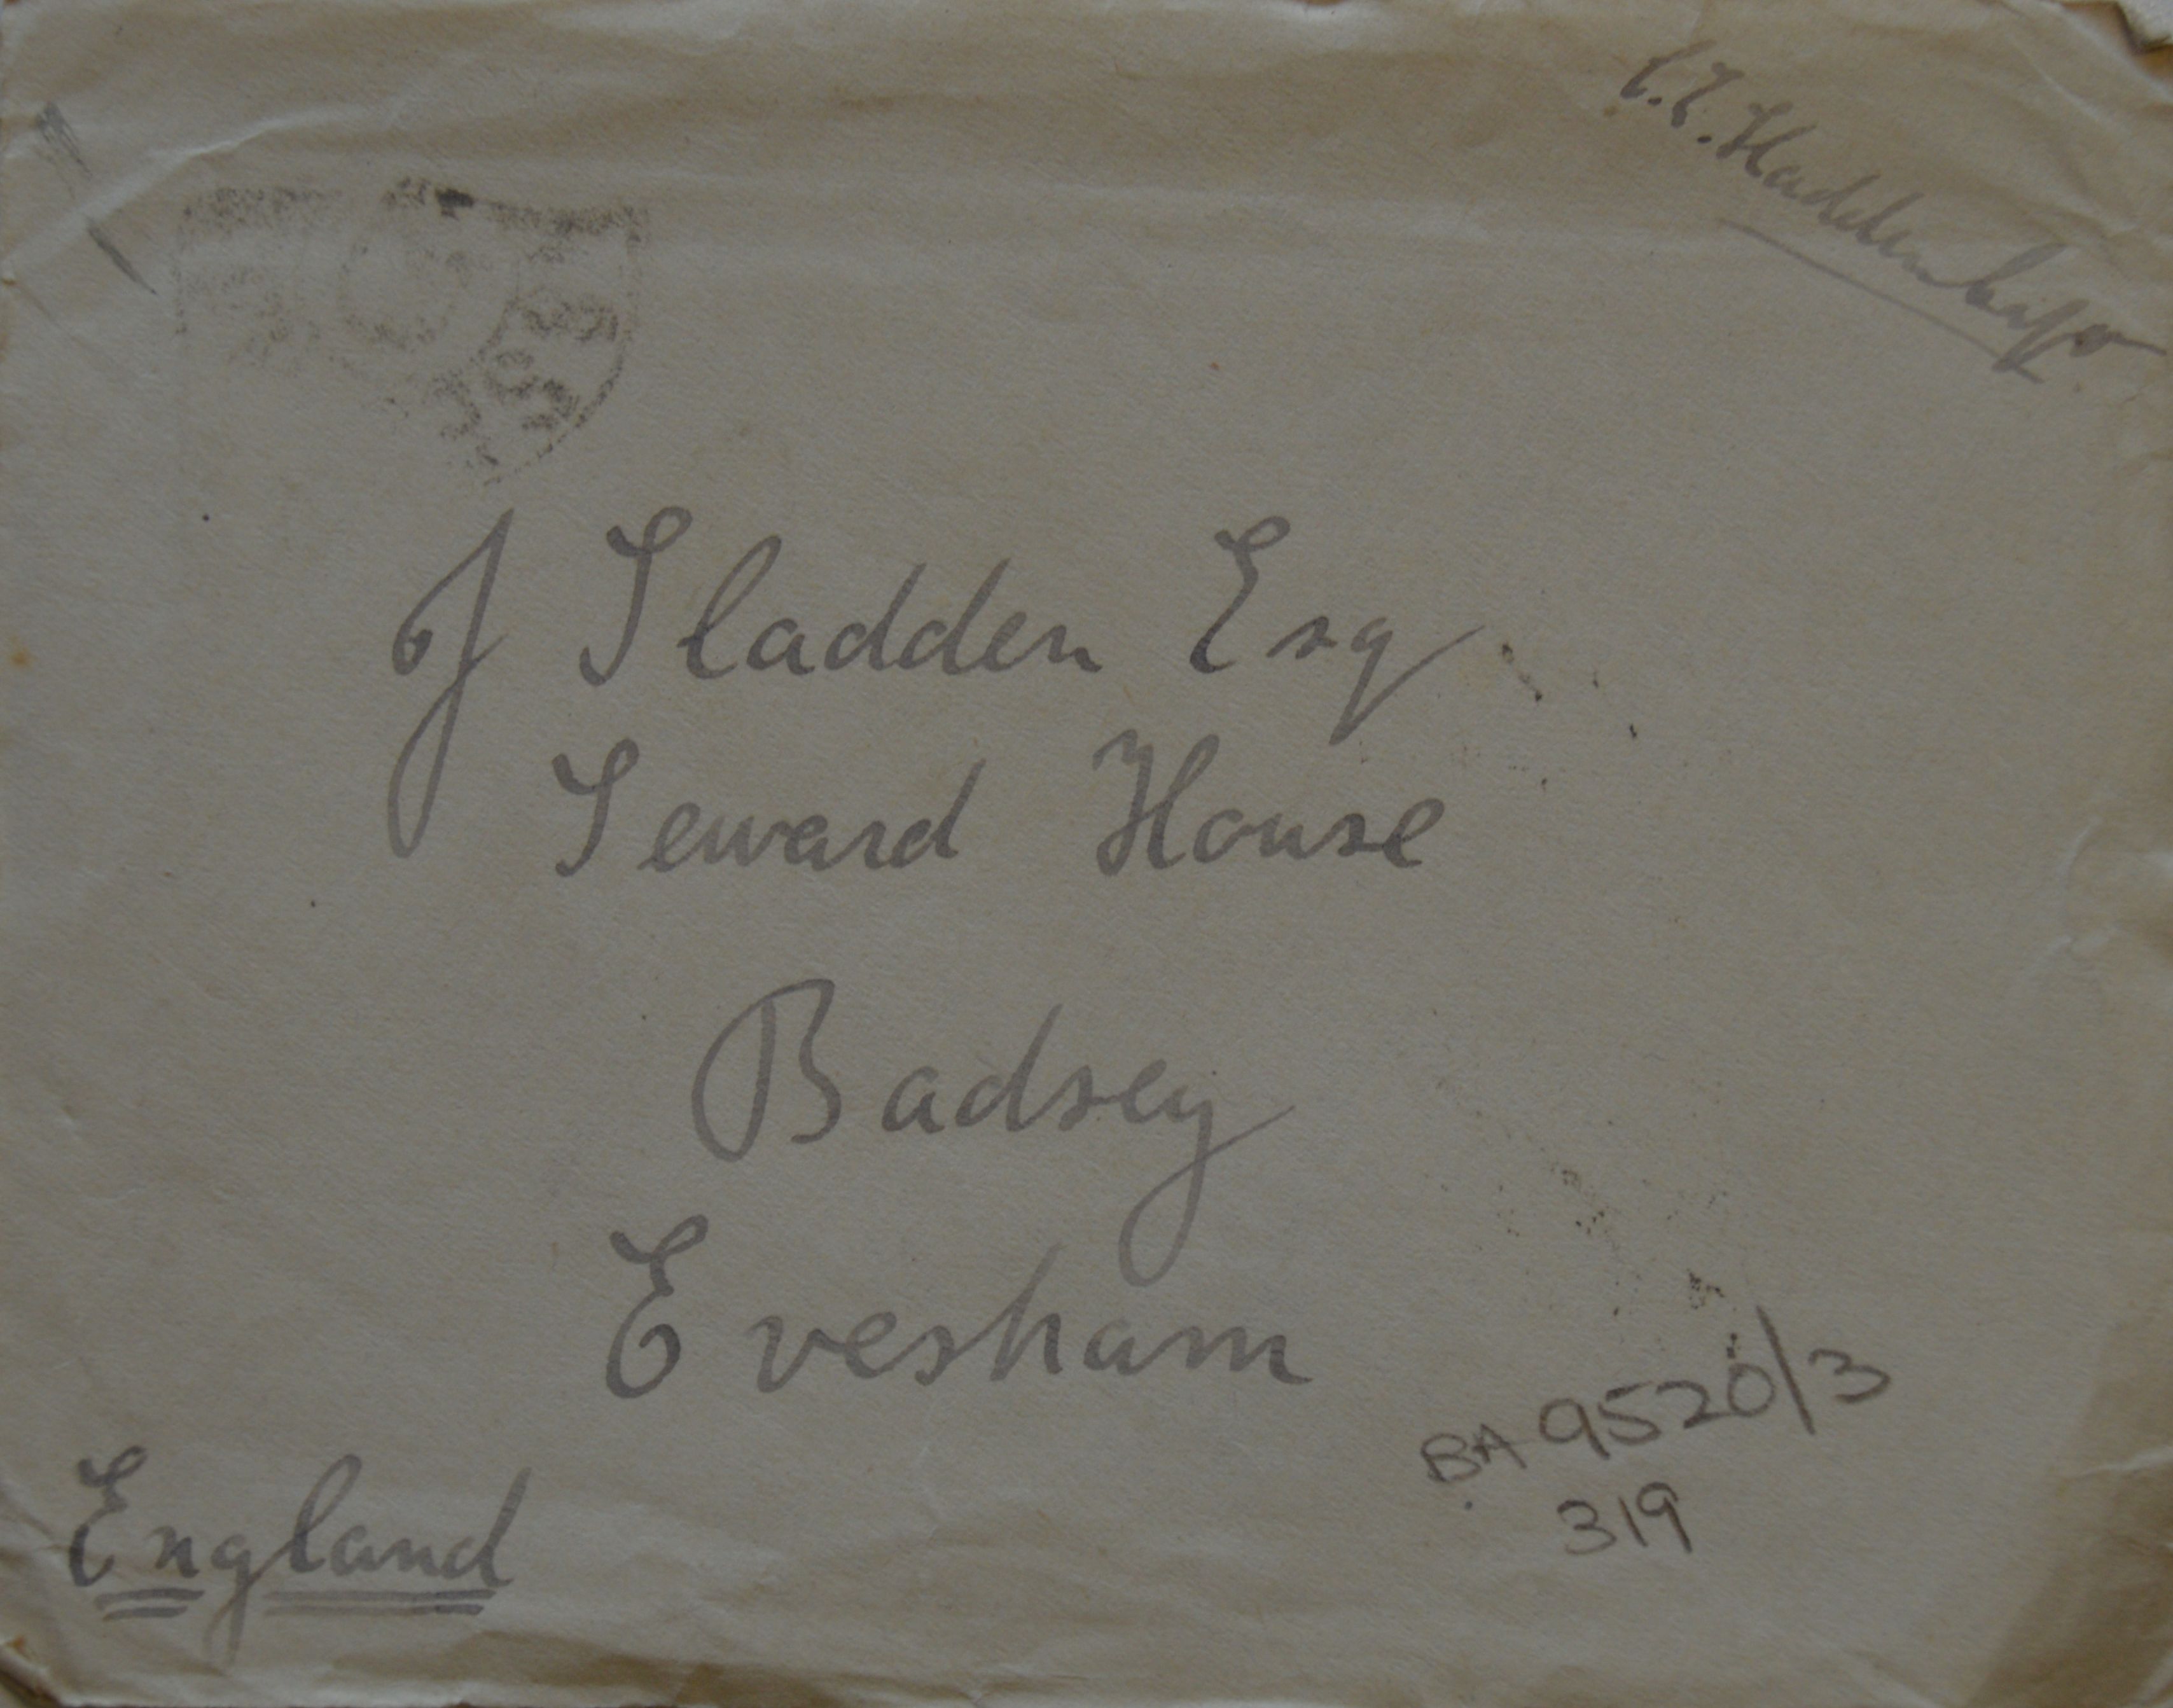 J Sladden Esq
Seward House
Badsey
Evesham
England
BA 9520/3
319